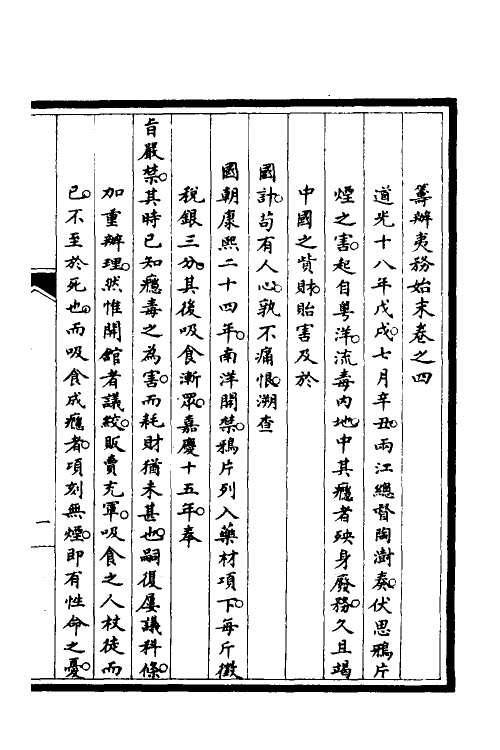 籌辦夷務始末卷之四
道光十八年戊戌七月辛丑。兩江總督陶澍奏。伏思鴉片
煙之害。起自粵洋。流毒內地。中其癮者殃身廢務。久且竭
中國之貲財。貽害及於
國計。苟有人心。孰不痛恨。溯查
國朝康熙二十四年。南洋開禁。鴉片列入藥材項下。每斤徵
稅銀三分。其後吸食漸眾。嘉慶十五年。奉
旨嚴禁。其時已知癮毒之為害。而耗財猶未甚也。嗣復屢議科條。
加重辦理。然惟開館者議絞。販賣充軍。吸食之人杖徒而
已。不至於死也。而吸食成癮者。頃刻無煙。即有性命之憂。
一